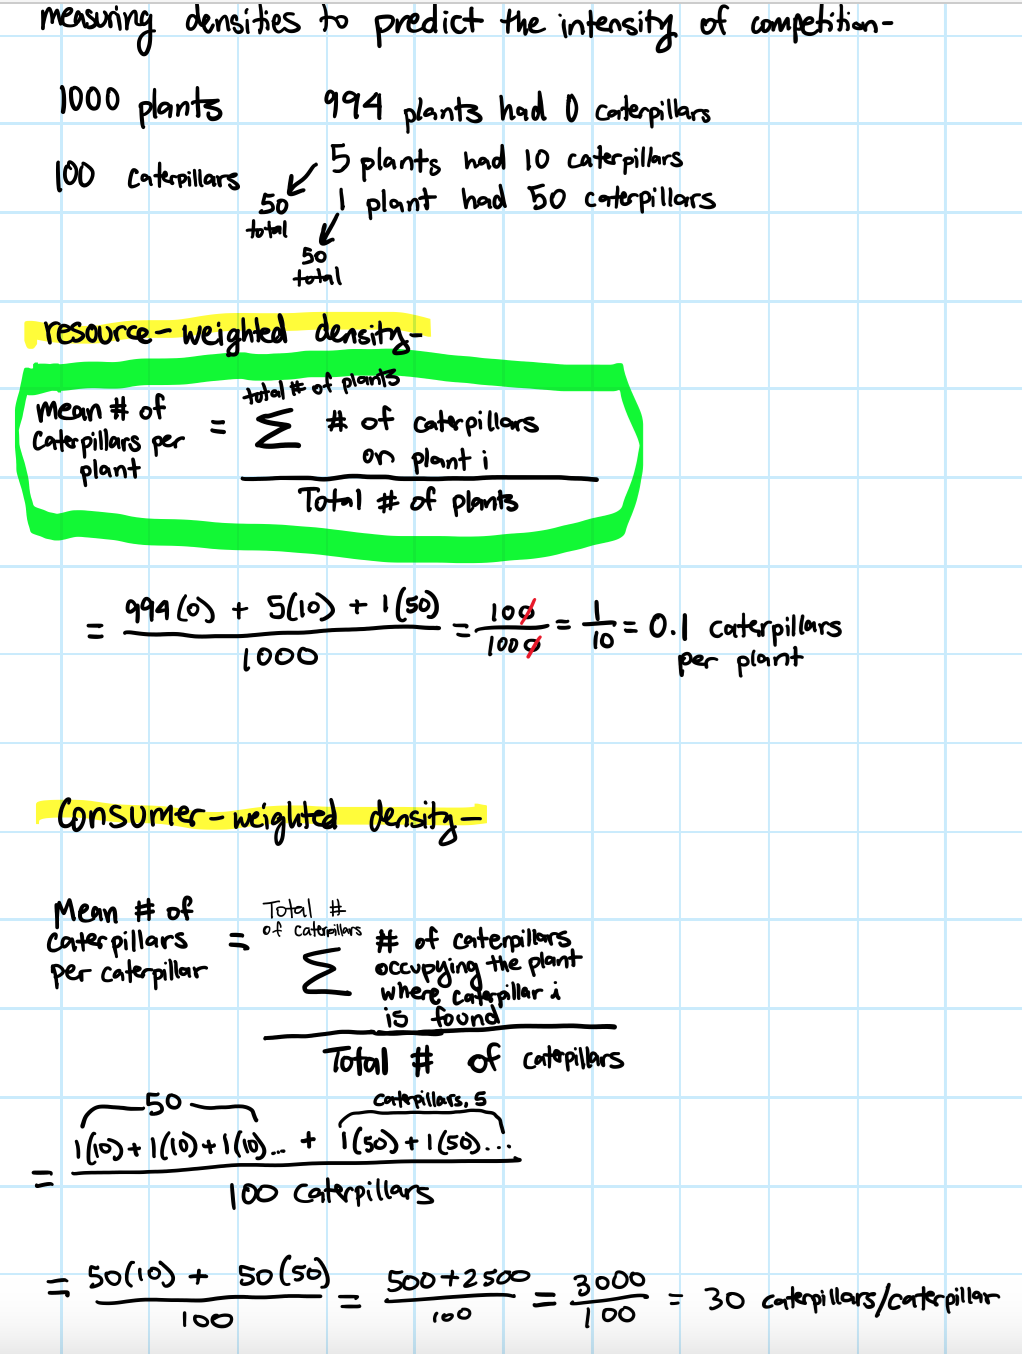 measuring densities to predict the intensity of competition-
1000 plants
994 plants had 0 caterpillars
100 caterpillars
5 plants had 10 caterpillars
50 total
1 plant had 50 caterpillars
50 total
resource-weighted density-
Mean # of caterpillars per plant = total # of plants Σ # of caterpillars on plant i
Total # of plants
= 994(0) + 5(10) + 1(50) / 1000 = 100/1000 = 1/10 = 0.1 caterpillars per plant
Consumer-weighted density-
Mean # of caterpillars per caterpillar = Total # of caterpillars Σ # of caterpillars occupying the plant where caterpillar i is found
Total # of caterpillars
50
caterpillars, 5
= 1(10)+1(10)+1(10)... + 1(50)+1(50)...
100 caterpillars
= 50(10) + 50(50) / 100 = 500+2500 / 100 = 3000/100 = 30 caterpillars/caterpillar